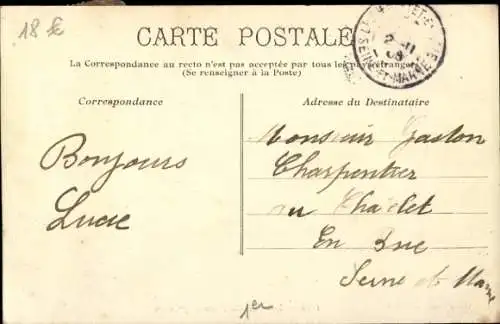 18 €
CARTE POSTALE
La Correspondance au recto n'est pas acceptée par tous les pays étrangers
(Se renseigner à la Poste)
Correspondance
Adresse du Destinataire
Bonjours
Lucie
Monsieur Gaston
Charpentier
au Châtelet
En Brie
Seine et Marne
SEINE-ET-MARNE
2-11
08
1er